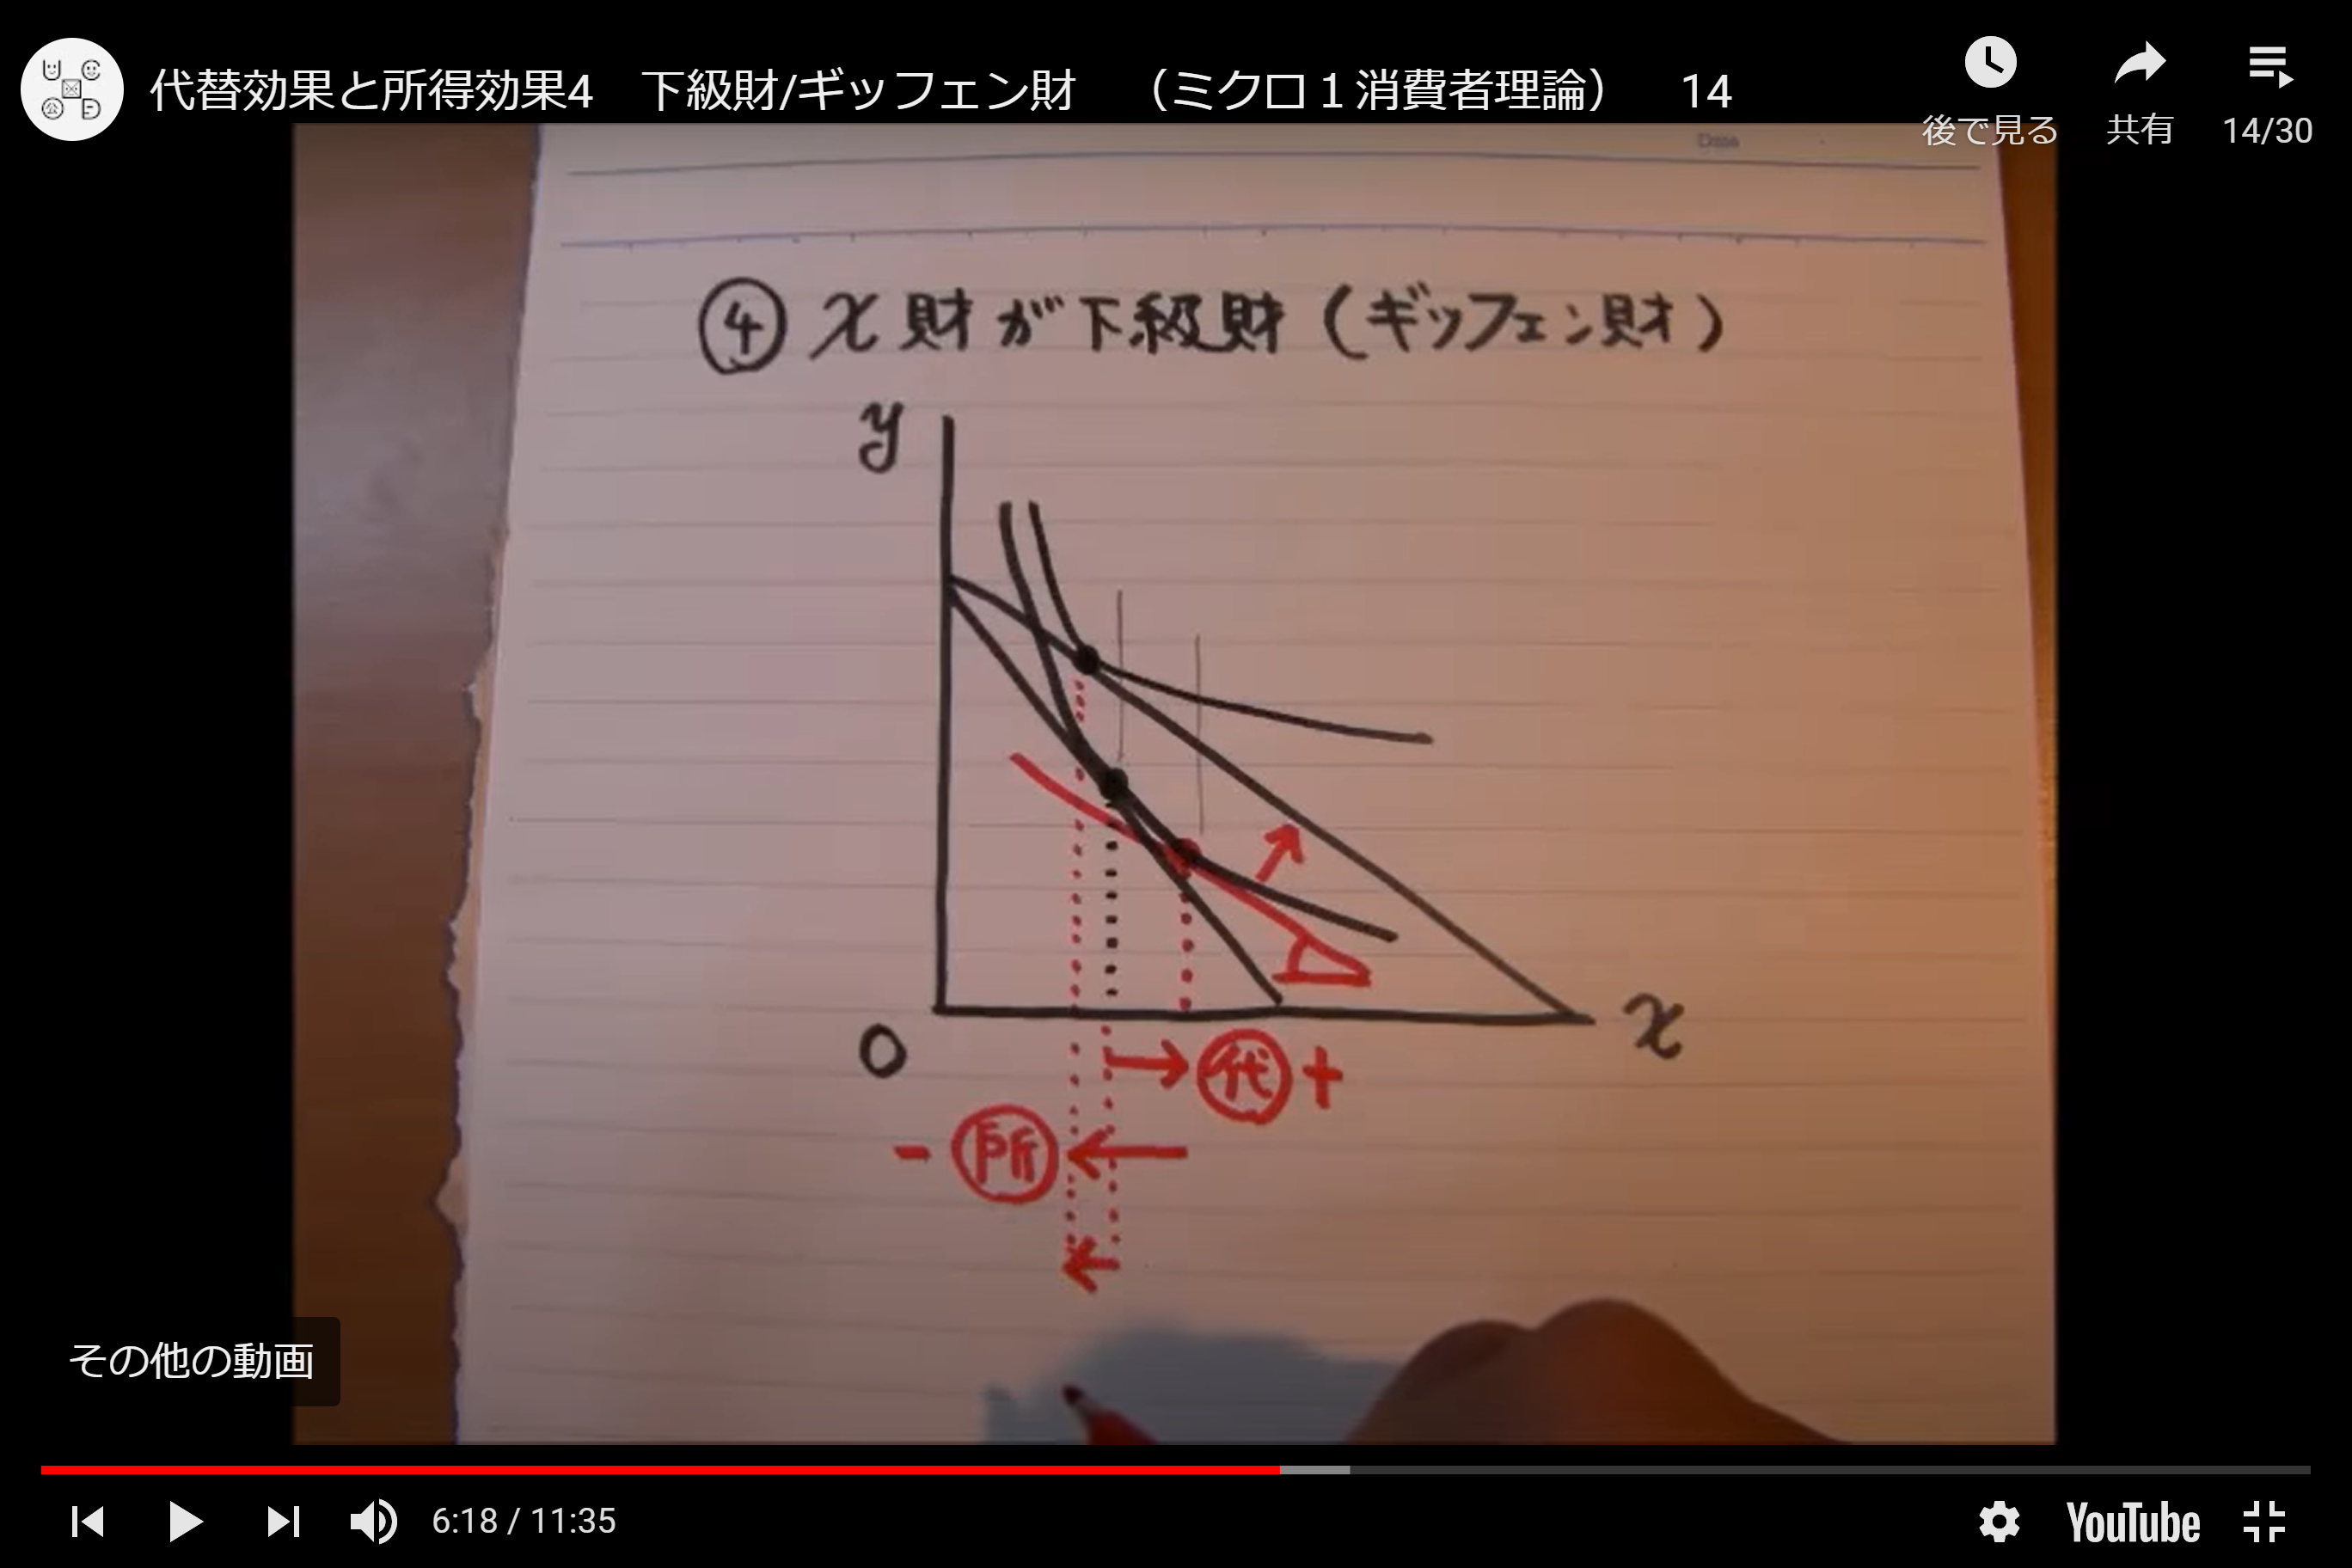 代替効果と所得効果4　下級財/ギッフェン財　（ミクロ１消費者理論）　14
後で見る
共有
14/30
Date
④ x財が下級財(ギッフェン財)
y
O
x
代 +
- 所
その他の動画
6:18 / 11:35
YouTube